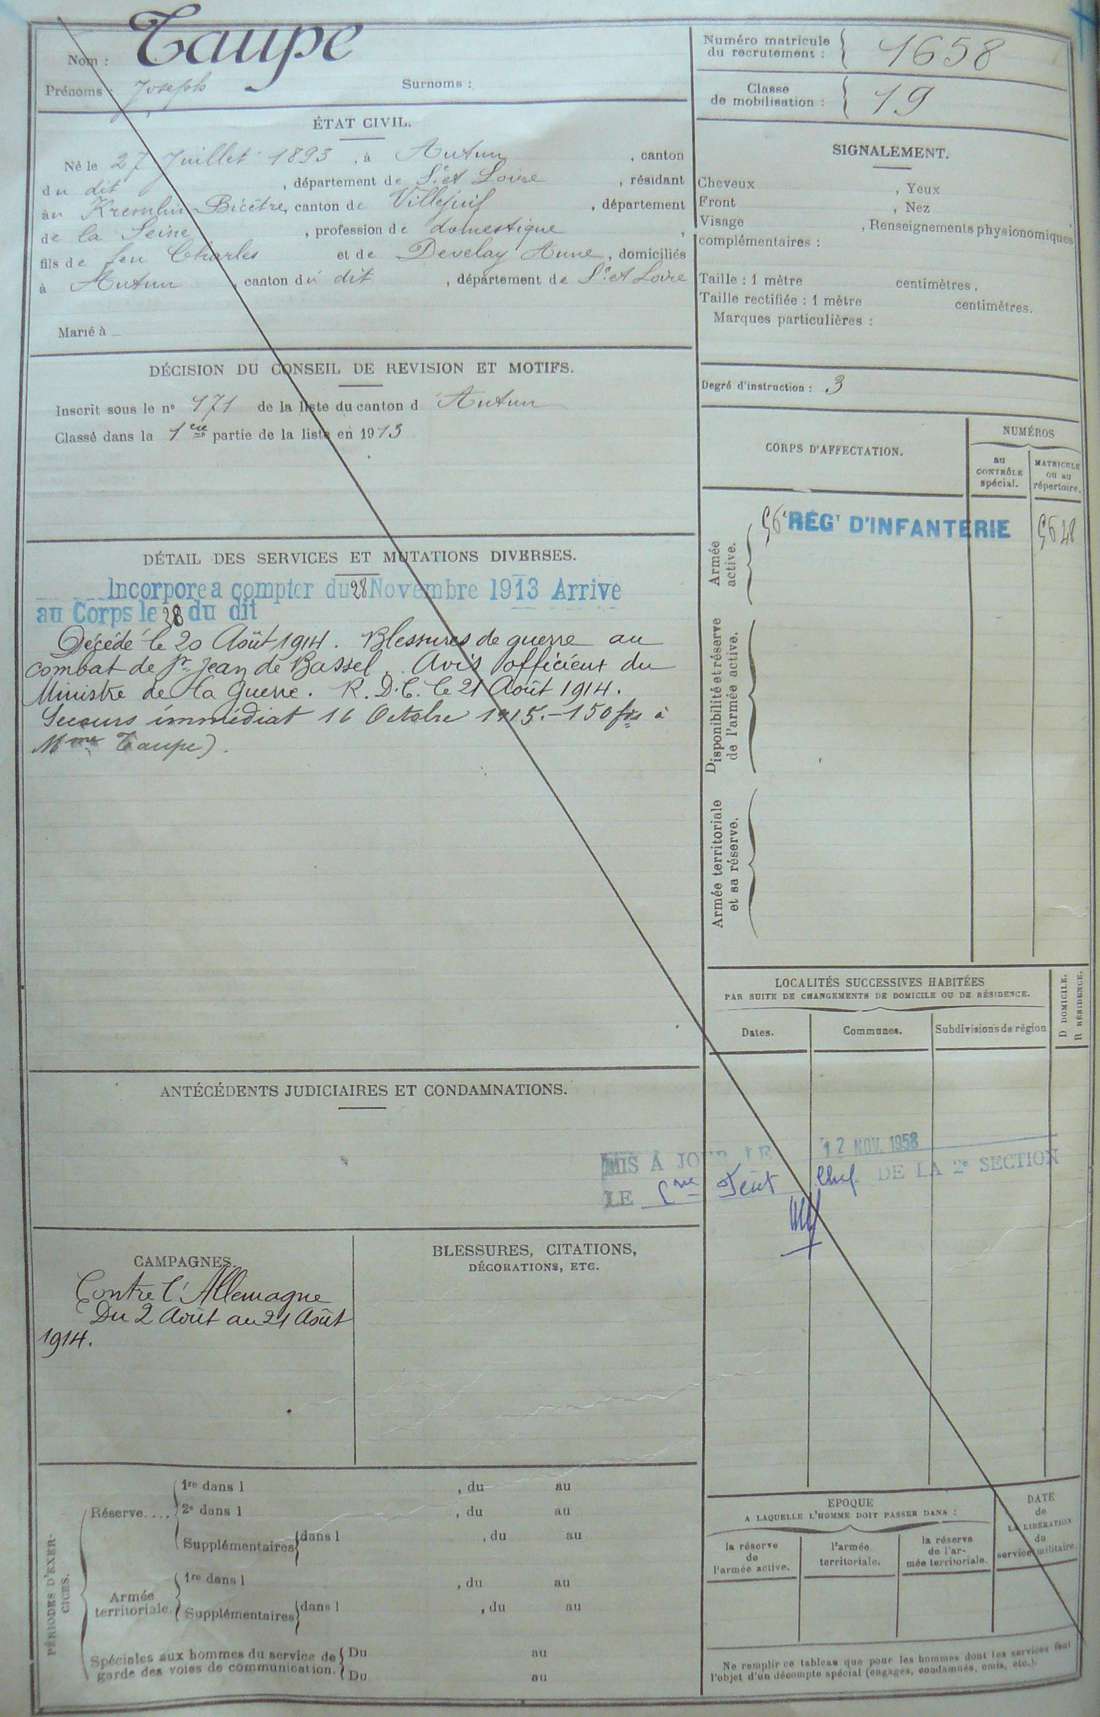 Nom : Taupe
Prénoms : Joseph Surnoms :
Numéro matricule
du recrutement : 1658
Classe
de mobilisation : 19
ÉTAT CIVIL.
Né le 27 Juillet 1893, à Autun, canton
du dit, département de S. et Loire, résidant
au Kremlin-Bicêtre, canton de Villejuif, département
de la Seine, profession de domestique,
fils de feu Charles et de Develay Anne, domiciliés
à Autun, canton du dit, département de S. et Loire
Marié à
SIGNALEMENT.
Cheveux , Yeux
Front , Nez
Visage , Renseignements physionomiques
complémentaires :
Taille : 1 mètre centimètres.
Taille rectifiée : 1 mètre centimètres.
Marques particulières :
Degré d'instruction : 3
DÉCISION DU CONSEIL DE REVISION ET MOTIFS.
Inscrit sous le n° 171 de la liste du canton d Autun
Classé dans la 1ère partie de la liste en 1913
CORPS D'AFFECTATION.
NUMÉROS
au
CONTRÔLE
spécial.
MATRICULE
OU AU
répertoire.
Armée
active.
56e RÉGT D'INFANTERIE 5648
Disponibilité et réserve
de l'armée active.
Armée territoriale
et sa réserve.
DÉTAIL DES SERVICES ET MUTATIONS DIVERSES.
Incorporé à compter du 28 Novembre 1913 Arrivé
au Corps le 28 du dit
Décédé le 20 Août 1914. Blessures de guerre au
combat de St Jean de Bassel. Avis officieux du
Ministre de la Guerre. R.D.C. le 21 Août 1914.
Secours immédiat 16 Octobre 1915.-150 frs à
Mme Taupe).
LOCALITÉS SUCCESSIVES HABITÉES
PAR SUITE DE CHANGEMENTS DE DOMICILE OU DE RÉSIDENCE.
Dates. Communes. Subdivisions de région
D DOMICILE.
R RÉSIDENCE.
ANTÉCÉDENTS JUDICIAIRES ET CONDAMNATIONS.
MIS À JOUR LE 12 NOV. 1958
LE Chef DE LA 2e SECTION
CAMPAGNES.
Contre l'Allemagne
Du 2 Août au 21 Août
1914.
BLESSURES, CITATIONS,
DÉCORATIONS, ETC.
PÉRIODES D'EXER-
CICES.
Réserve....
1re dans l , du au
2e dans l , du au
Supplémentaires dans l , du au
Armée
territoriale.
1re dans l , du au
Supplémentaires dans l , du au
Spéciales aux hommes du service de
garde des voies de communication.
Du au
Du au
EPOQUE
A LAQUELLE L'HOMME DOIT PASSER DANS :
la réserve
de
l'armée active.
l'armée
territoriale.
la réserve
de l'ar-
mée territoriale.
DATE
de
LA LIBÉRATION
du
service militaire.
Ne remplir ce tableau que pour les hommes dont les services font
l'objet d'un décompte spécial (engagés, condamnés, omis, etc.).